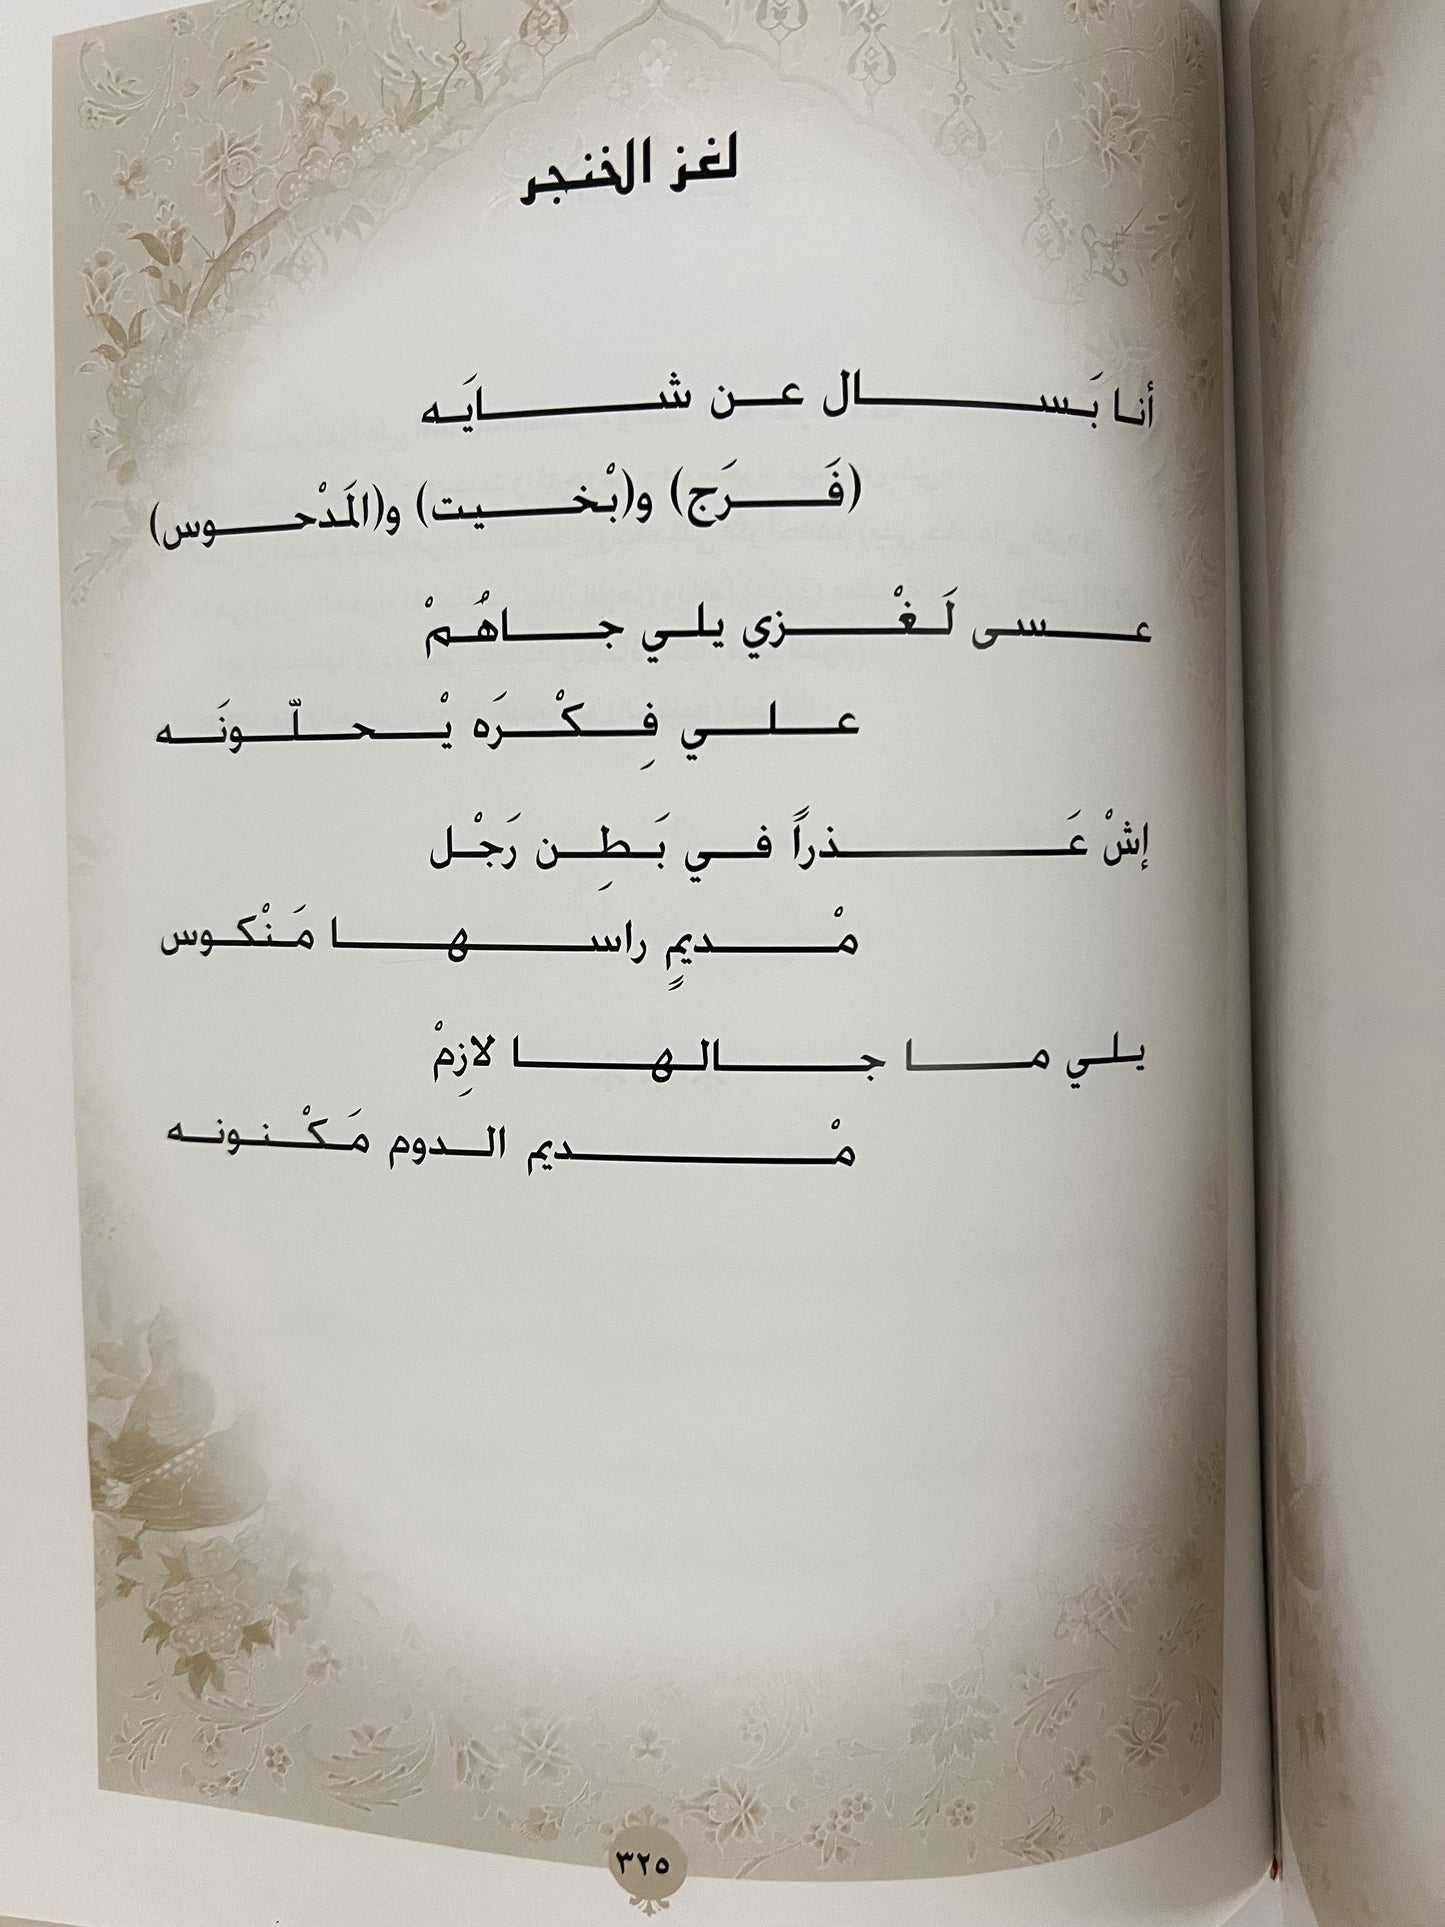 لغز الخنجر
أنا بَسال عن شايَه
(فَرَج) و(بْخيت) و(المَدْحوس)
عسى لَغْزي يلي جاهُمْ
علي فِكْرَه يْحلّونَه
إشْ عَذراً في بَطِن رَجْل
مْديمٍ راسها مَنْكوس
يلي ما جالها لازِمْ
مْديم الدوم مَكْنونه
٣٢٥